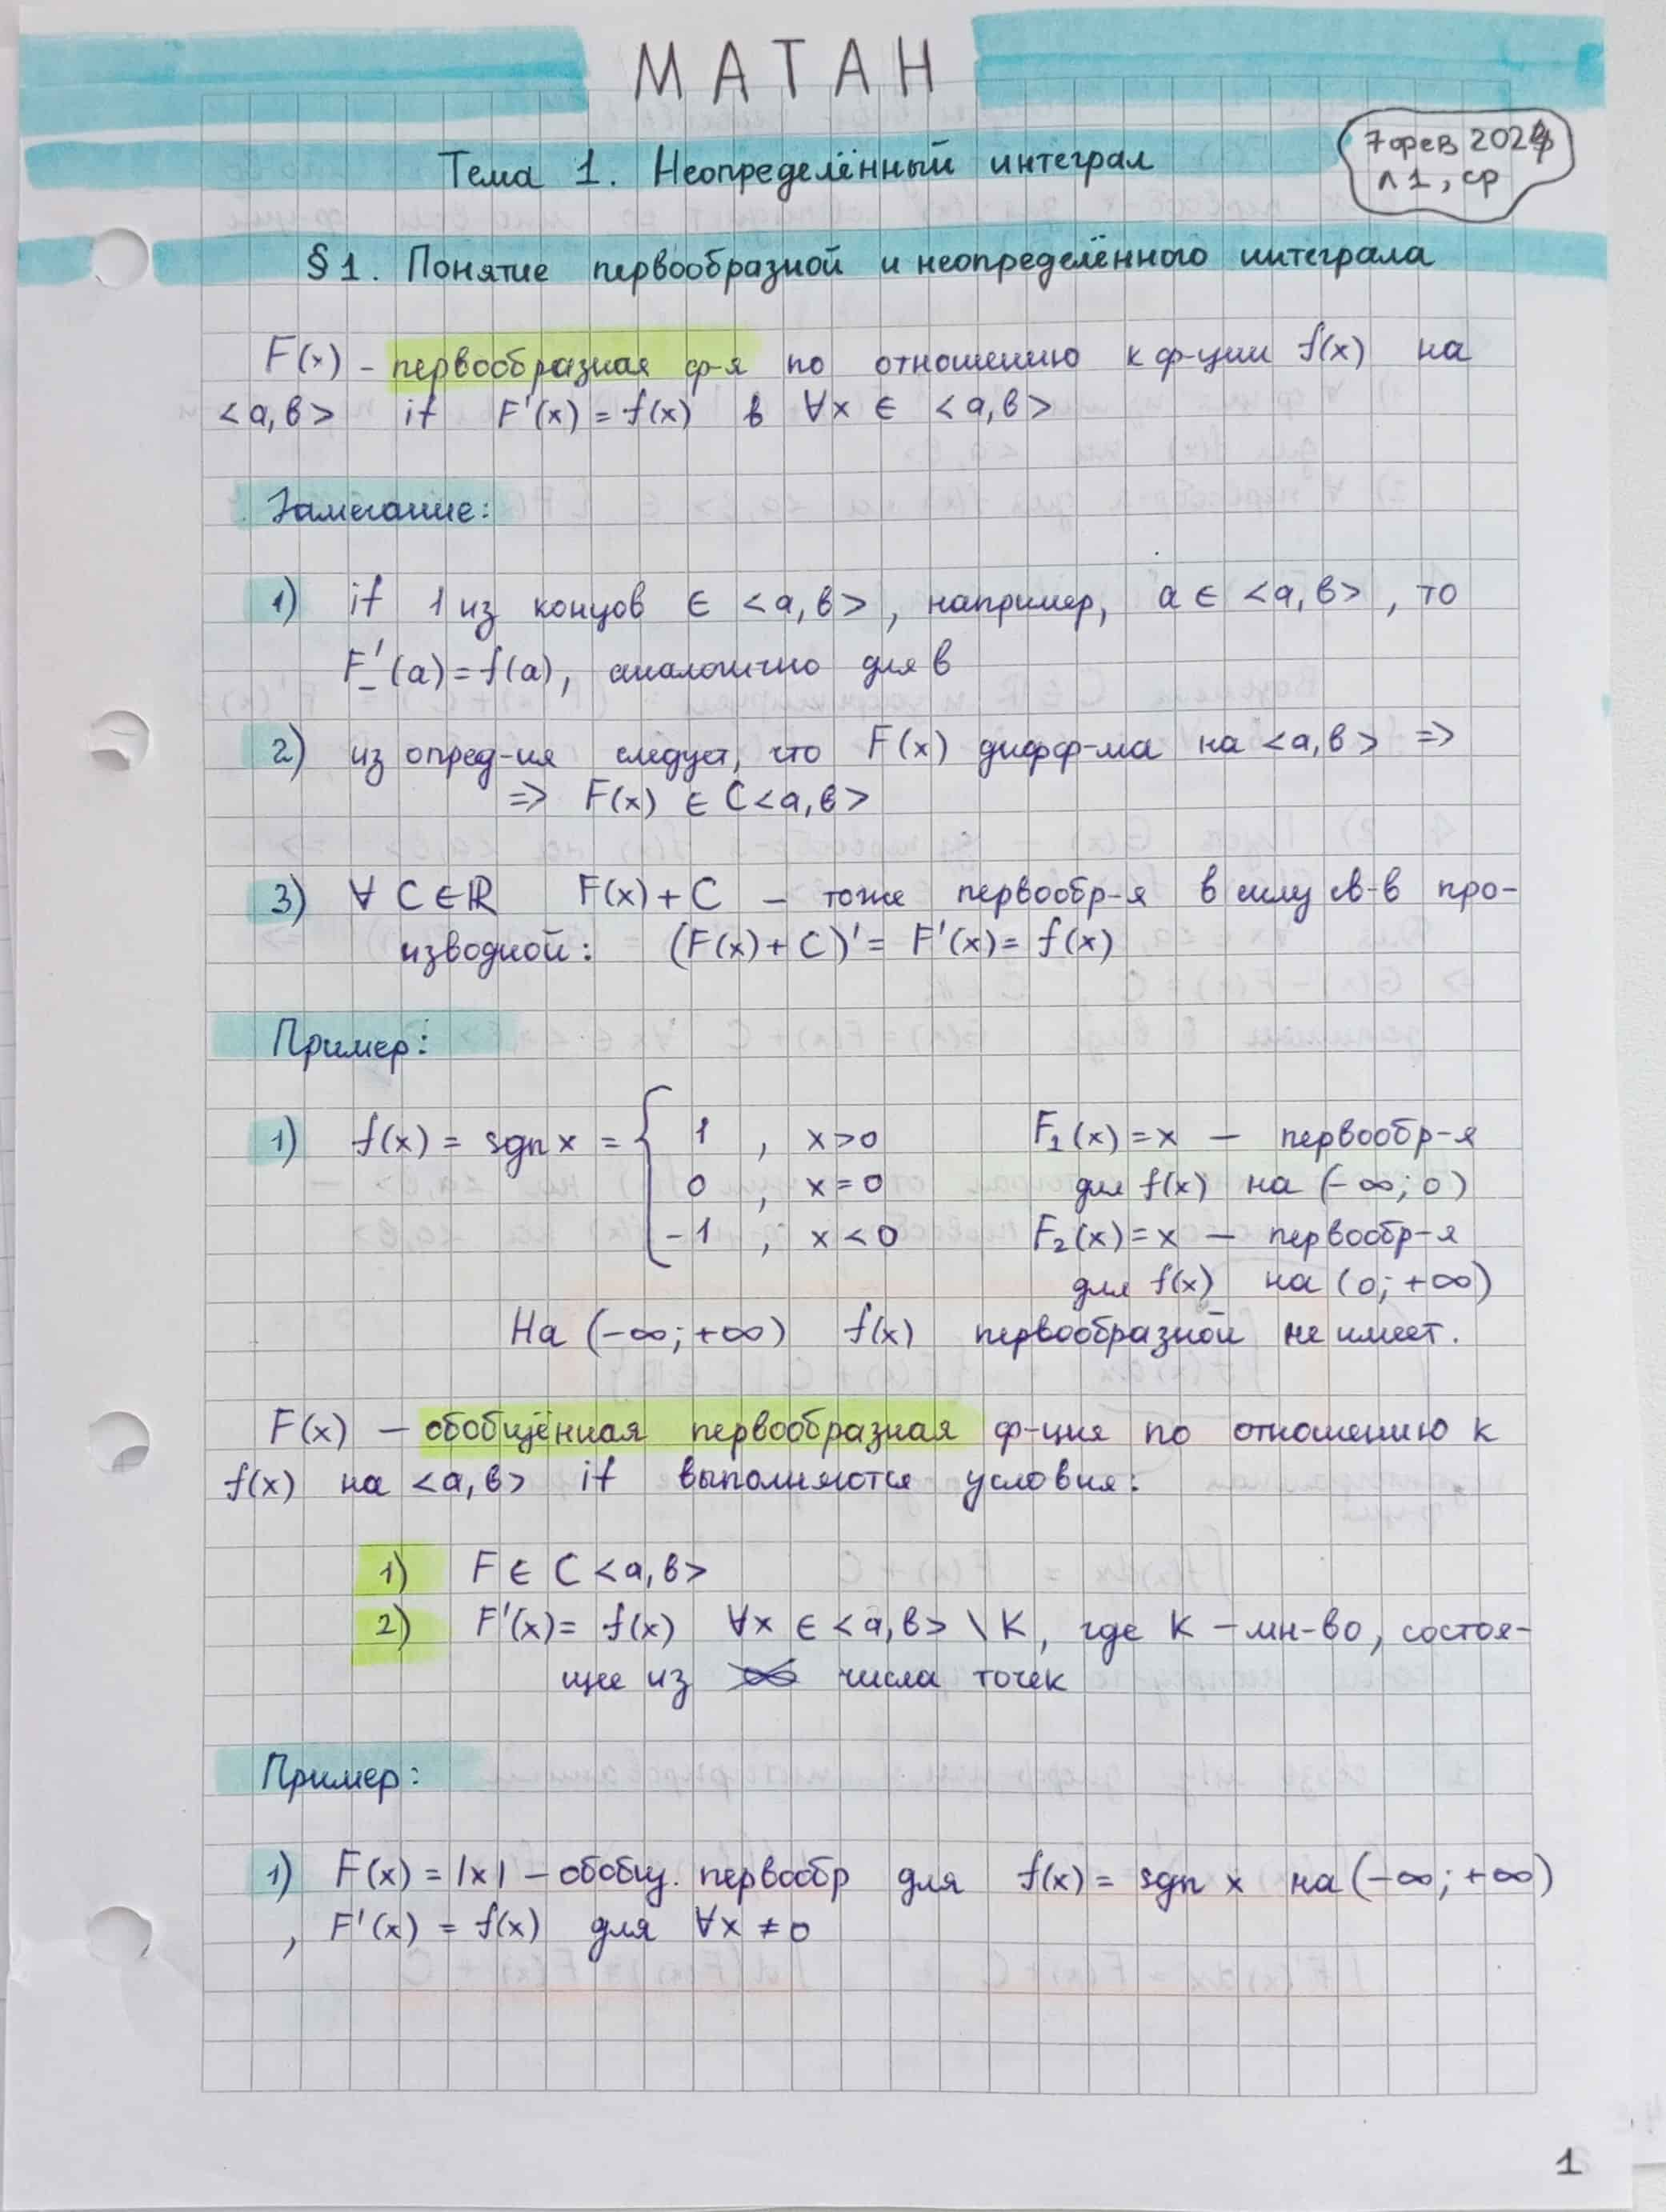 МАТАН
Тема 1. Неопределённый интеграл
7 фев 2024
л 1, ср
§ 1. Понятие первообразной и неопределённого интеграла
F(x) – первообразная ф-я по отношению к ф-ции f(x) на
<a,b> if F'(x) = f(x) в ∀x ∈ <a,b>
Замечание:
1) if 1 из концов ∈ <a,b>, например, a ∈ <a,b>, то
F'₋(a) = f(a), аналогично для b
2) из опред-ия следует, что F(x) дифф-ма на <a,b> =>
=> F(x) ∈ C<a,b>
3) ∀ C ∈ ℝ F(x) + C – тоже первообр-я в силу св-в про-
изводной: (F(x) + C)' = F'(x) = f(x)
Пример:
1) f(x) = sgn x = { 1 , x > 0 F₁(x) = x — первообр-я
0 , x = 0 для f(x) на (-∞; 0)
-1 , x < 0 F₂(x) = x — первообр-я
для f(x) на (0; +∞)
На (-∞; +∞) f(x) первообразной не имеет.
F(x) – обобщённая первообразная ф-ция по отношению к
f(x) на <a,b> if выполняются условия:
1) F ∈ C <a,b>
2) F'(x) = f(x) ∀x ∈ <a,b> \ K, где K – мн-во, состоя-
щее из числа точек
Пример:
1) F(x) = |x| – обобщ. первообр для f(x) = sgn x на (-∞; +∞)
, F'(x) = f(x) для ∀x ≠ 0
1